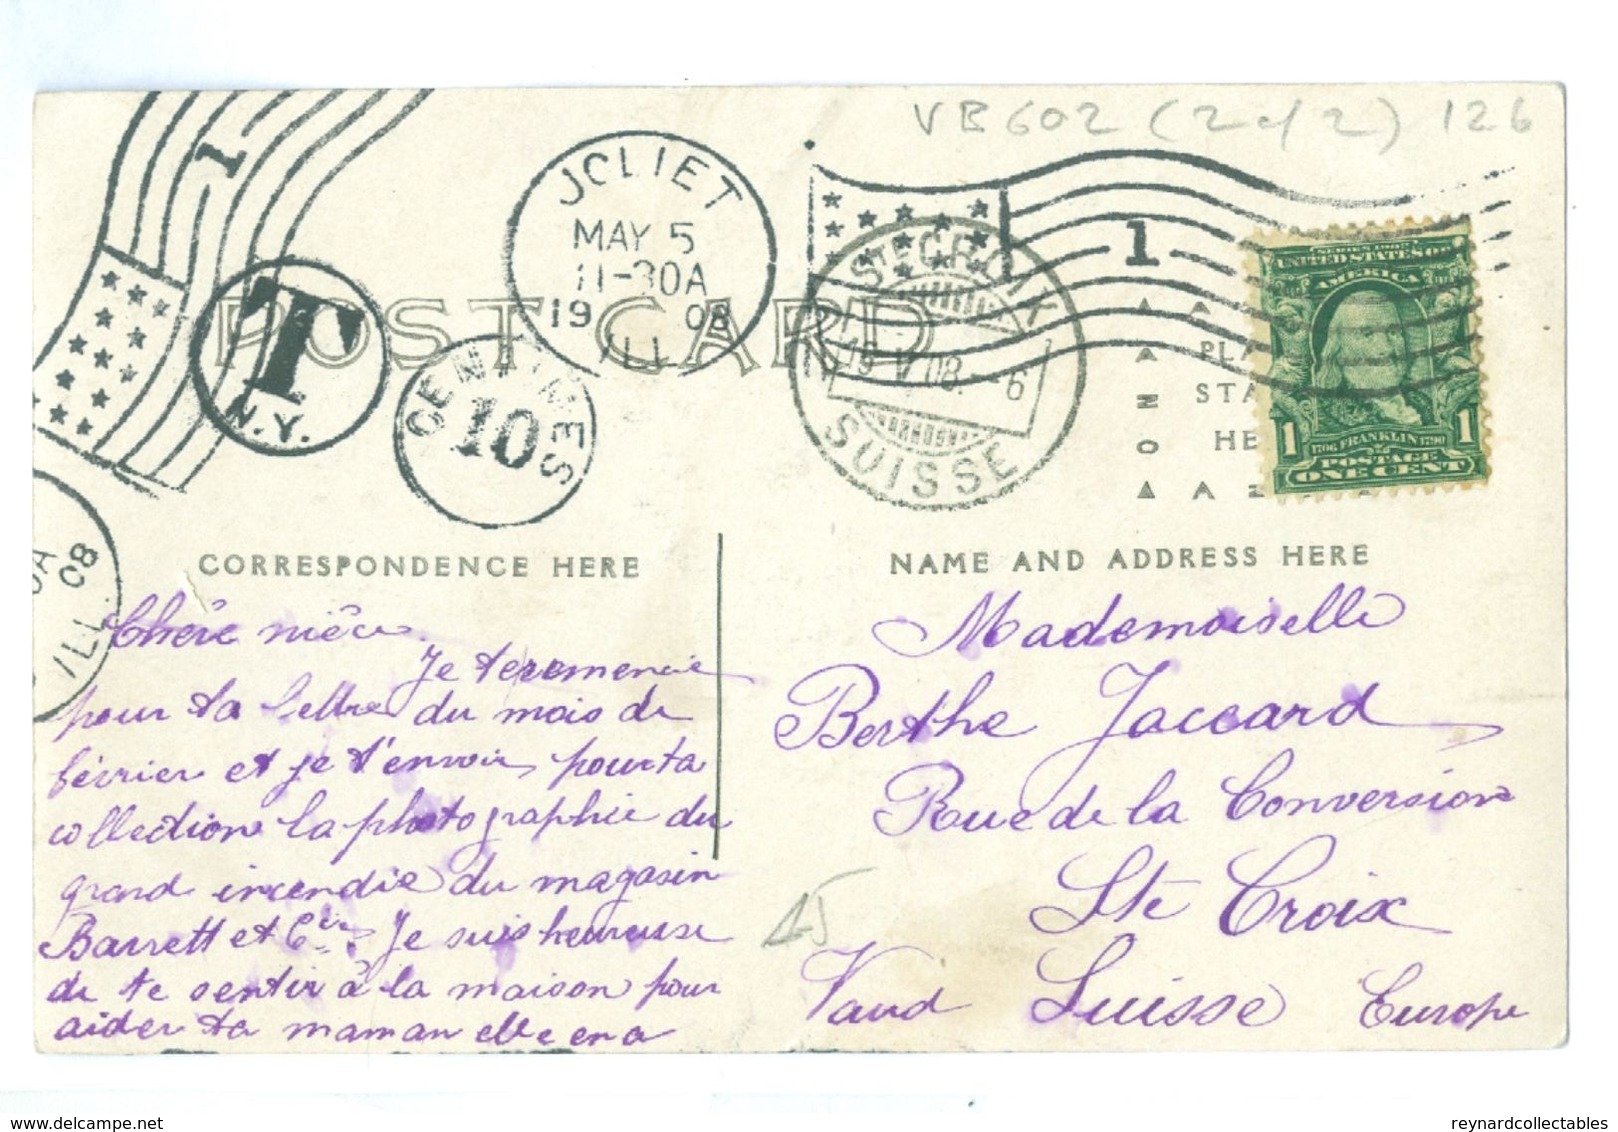 VB602 (2 of 2) 126
1
JOLIET
MAY 5
11-30A
19 08
ILL
1
STE CROIX
19 V 08. 6
SUISSE
T
N.Y.
CENTIMES
10
POST CARD
PLA
STA
HE
SERIES 1902
UNITED STATES OF
AMERICA
1 1
1706 FRANKLIN 1790
POSTAGE
ONE CENT
08
ILL.
CORRESPONDENCE HERE
NAME AND ADDRESS HERE
Chère nièce.
Je te remercie
pour ta lettre du mois de
février et je t'envoie pour ta
collection la photographie du
grand incendie du magasin
Barrett et Cie. Je suis heureuse
de te sentir à la maison pour
aider ta maman elle en a
Mademoiselle
Berthe Jaccard
Rue de la Conversion
Ste Croix
Vaud Suisse Europe
www.delcampe.net
reynardcollectables